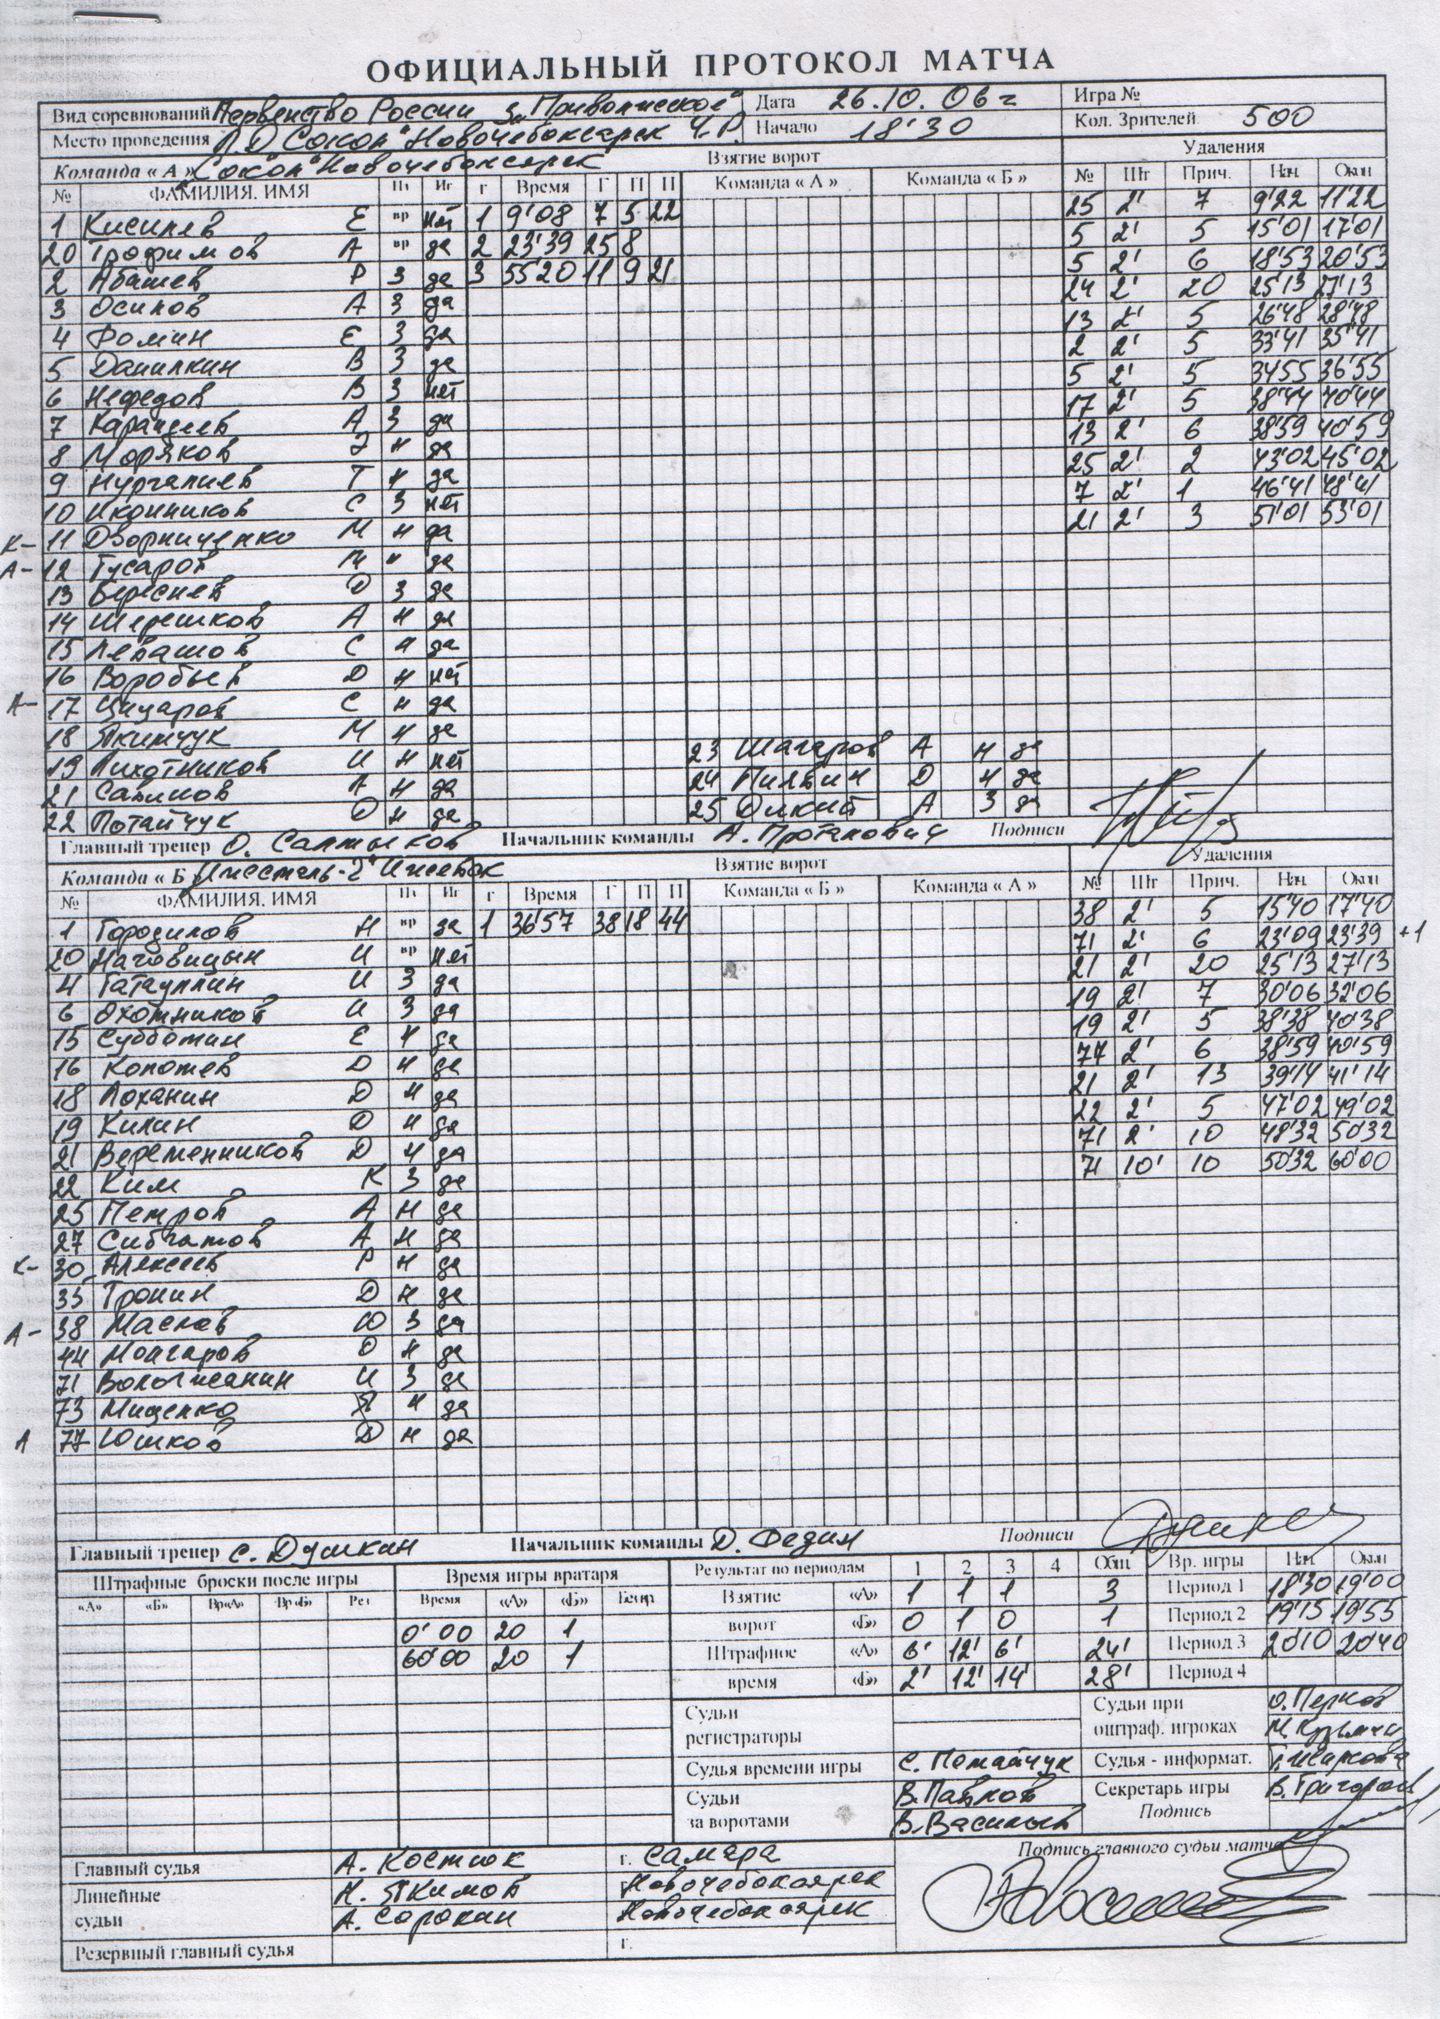 ОФИЦИАЛЬНЫЙ ПРОТОКОЛ МАТЧА
Вид соревнований Первенство России з. "Приволжское" Дата 26.10.06 г Игра №
Место проведения Л.Д Сокол "Новочебоксарск Ч.Р. Начало 18'30 Кол. Зрителей 500
Команда « А » "Сокол" Новочебоксарск Взятие ворот Удаления
№ ФАМИЛИЯ. ИМЯ Пз Иг г Время Г П П Команда « А » Команда « Б » № Шт Прич. Нач. Окон
1 Киселев Е вр нет 1 9'08 7 5 22 25 2' 7 9'22 11'22
20 Трофимов А вр да 2 23'39 25 8 5 2' 5 15'01 17'01
2 Абашев Р З да 3 55'20 11 9 21 5 2' 6 18'53 20'53
3 Осипов А З да 24 2' 20 25'13 27'13
4 Фомин Е З да 13 2' 5 26'48 28'48
5 Данилкин В З да 2 2' 5 33'41 35'41
6 Нефедов В З нет 5 2' 5 34'55 36'55
7 Каранцев А З да 17 2' 5 38'44 40'44
8 Моряков Э н да 13 2' 6 38'59 40'59
9 Нургалиев Т н да 25 2' 2 43'02 45'02
10 Иконников С З нет 7 2' 1 46'41 48'41
К- 11 Дворниченко М н да 21 2' 3 51'01 53'01
А- 12 Гусаров М н да
13 Береснев О З да
14 Шерешков А н да
15 Левашов С н да
16 Воробьев D н нет
А- 17 Цицаров С н да
18 Якимчук М н да 23 Шагаров А н да
19 Пихотников И н нет 24 Пильвин D н да
21 Савинов А н да 25 Дикий А З да
22 Потайчук О н да
Главный тренер О. Салтыков Начальник команды А. Протапович Подписи
Команда « Б » "Ижсталь-2" Ижевск Взятие ворот Удаления
№ ФАМИЛИЯ. ИМЯ Пз Иг г Время Г П П Команда « Б » Команда « А » № Шт Прич. Нач. Окон
1 Городилов Н вр да 1 36'57 38 18 44 38 2' 5 15'40 17'40
20 Наговицын И вр нет 71 2' 6 23'09 23'39 +1
4 Гатауллин И З да 21 2' 20 25'13 27'13
6 Охотников И З да 19 2' 7 30'06 32'06
15 Субботин Е н да 19 2' 5 38'38 40'38
16 Копотев D н да 77 2' 6 38'59 40'59
18 Лоханин D н да 21 2' 13 39'14 41'14
19 Килин О н да 22 2' 5 47'02 49'02
21 Веретенников D н да 71 2' 10 48'32 50'32
22 Ким К З да 71 10' 10 50'32 60'00
25 Петров А н да
27 Сибгатов А н да
К- 30 Алексеев Р н да
35 Тронин D н да
А- 38 Маслов Ю З да
44 Молгаров О н да
71 Вологжанин И З да
73 Мищенко Я н да
А 77 Юшков D н да
Главный тренер С. Душкин Начальник команды Д. Федин Подписи
Штрафные броски после игры Время игры вратаря Результат по периодам 1 2 3 4 Общ Вр. игры Нач. Окон
«А» «Б» Вр«А» Вр«Б» Рез Время «А» «Б» Взятие «А» 1 1 1 3 Период 1 18'30 19'00
0'00 20 1 ворот «Б» 0 1 0 1 Период 2 19'15 19'55
60'00 20 1 Штрафное «А» 6' 12' 6' 24' Период 3 20'10 20'40
время «Б» 2' 12' 14' 28' Период 4
Судьи регистраторы Судьи при О. Перков
оштраф. игроках М. Кузьмин
Судья времени игры С. Потайчук Судья - информат. Г. Жаркова
Судьи В. Павлов Секретарь игры В. Григорьев
за воротами В. Васильев Подпись
Главный судья А. Костюк г. Самара Подпись главного судьи матча
Линейные Н. Якимов Новочебоксарск
судьи А. Сорокин Новочебоксарск
Резервный главный судья г.